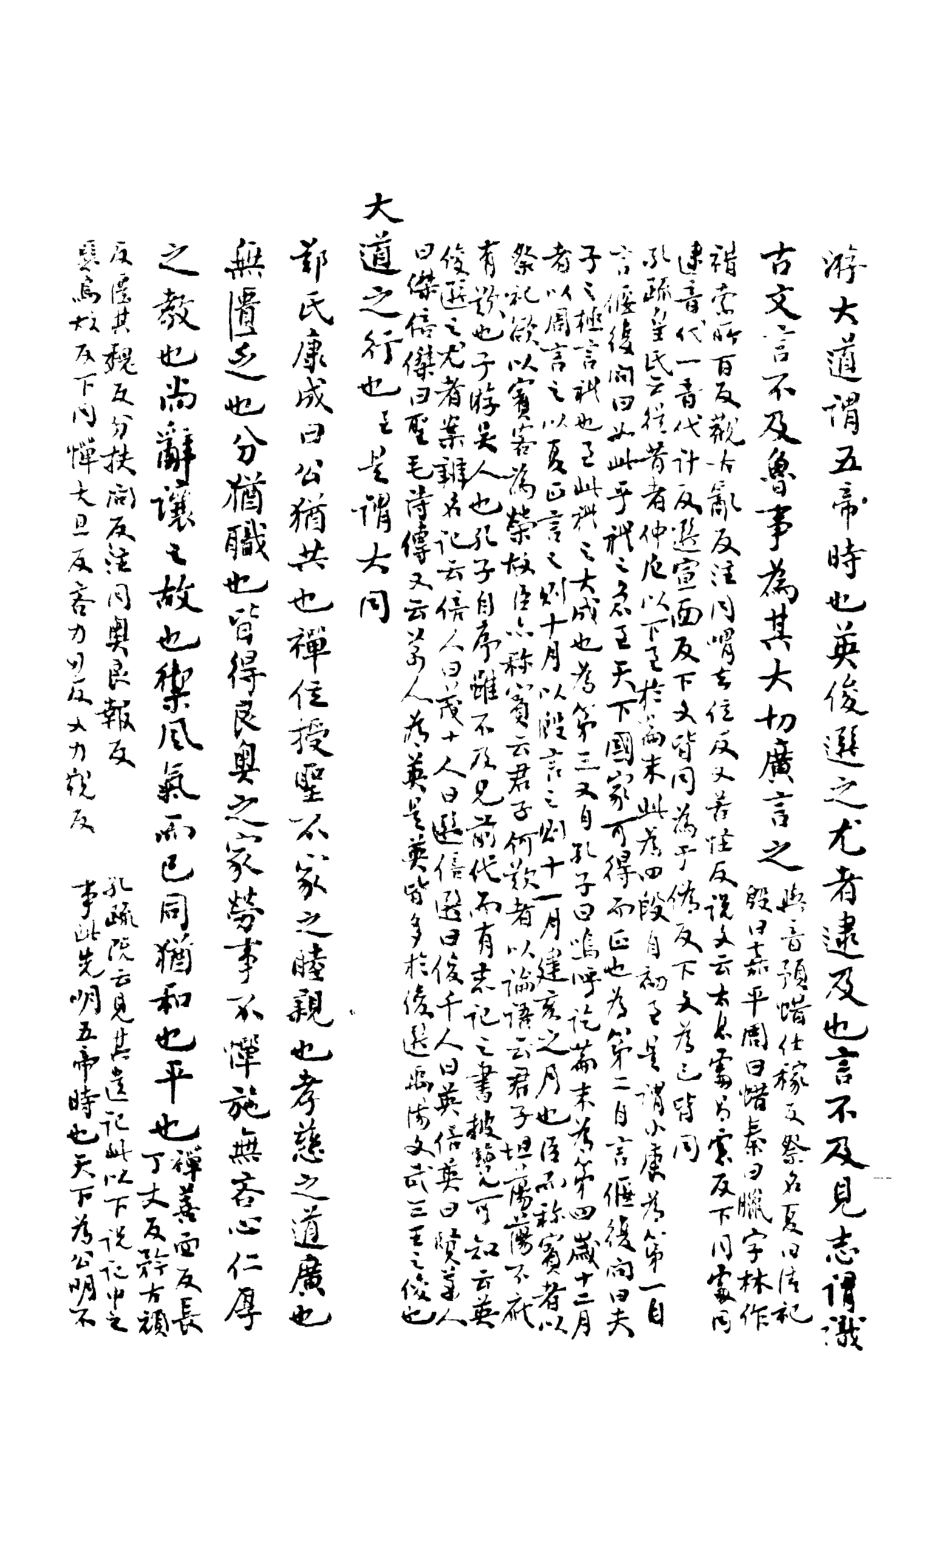 游大道謂五帝時也英俊選之尤者逮及也言不及見志謂識
古文言不及魯事為其大切廣言之
與音預蜡仕稼反祭名夏曰清祀
殷曰嘉平周曰蜡秦曰臘字林作
䄍索所百反觀古亂反注同喟去位反又苦怪反說文云太息雩音雩反下同處同
逮音代一音代計反選宣面反下文皆同為于偽反下文為己皆同
孔疏皇氏云從昔者仲尼以下至於篇末此為四段自初至是謂小康為第一自
言偃復問曰如此乎禮之急至天下國家可得而正也為第二自言偃復問曰夫
子之極言禮也至此禮之大成也為第三又自孔子曰嗚呼訖篇末為第四歲十二月
者以周言之以夏正言之則十月以殷言之則十一月建亥之月也臣而稱賓者以
祭祀欲以賓客為榮故臣亦稱賓云君子何歎者以論語云君子坦蕩蕩不應
有歎也子游吳人也孔子自序雖不及見前代而有志記之書披覽可知云英
俊選之尤者案辨名記云倍人曰茂十人曰選倍選曰俊千人曰英倍英曰賢萬人
曰傑倍傑曰聖毛詩傳又云萬人為英是英皆多於俊選也禹湯文武三王之俊也
大道之行也至是謂大同
鄭氏康成曰公猶共也禪位授聖不家之睦親也孝慈之道廣也
無匱乏也分猶職也皆得良奧之家勞事不憚施無吝心仁厚
之教也尚辭讓之故也禦風氣而已同猶和也平也
禪善面反長
丁丈反矜古頑
反匱其魏反分扶問反注同奧良報反
惡烏故反下同憚大旦反吝力刃反又力覲反
孔疏院云見其遺記此以下說記中之
事此先明五帝時也天下為公明不